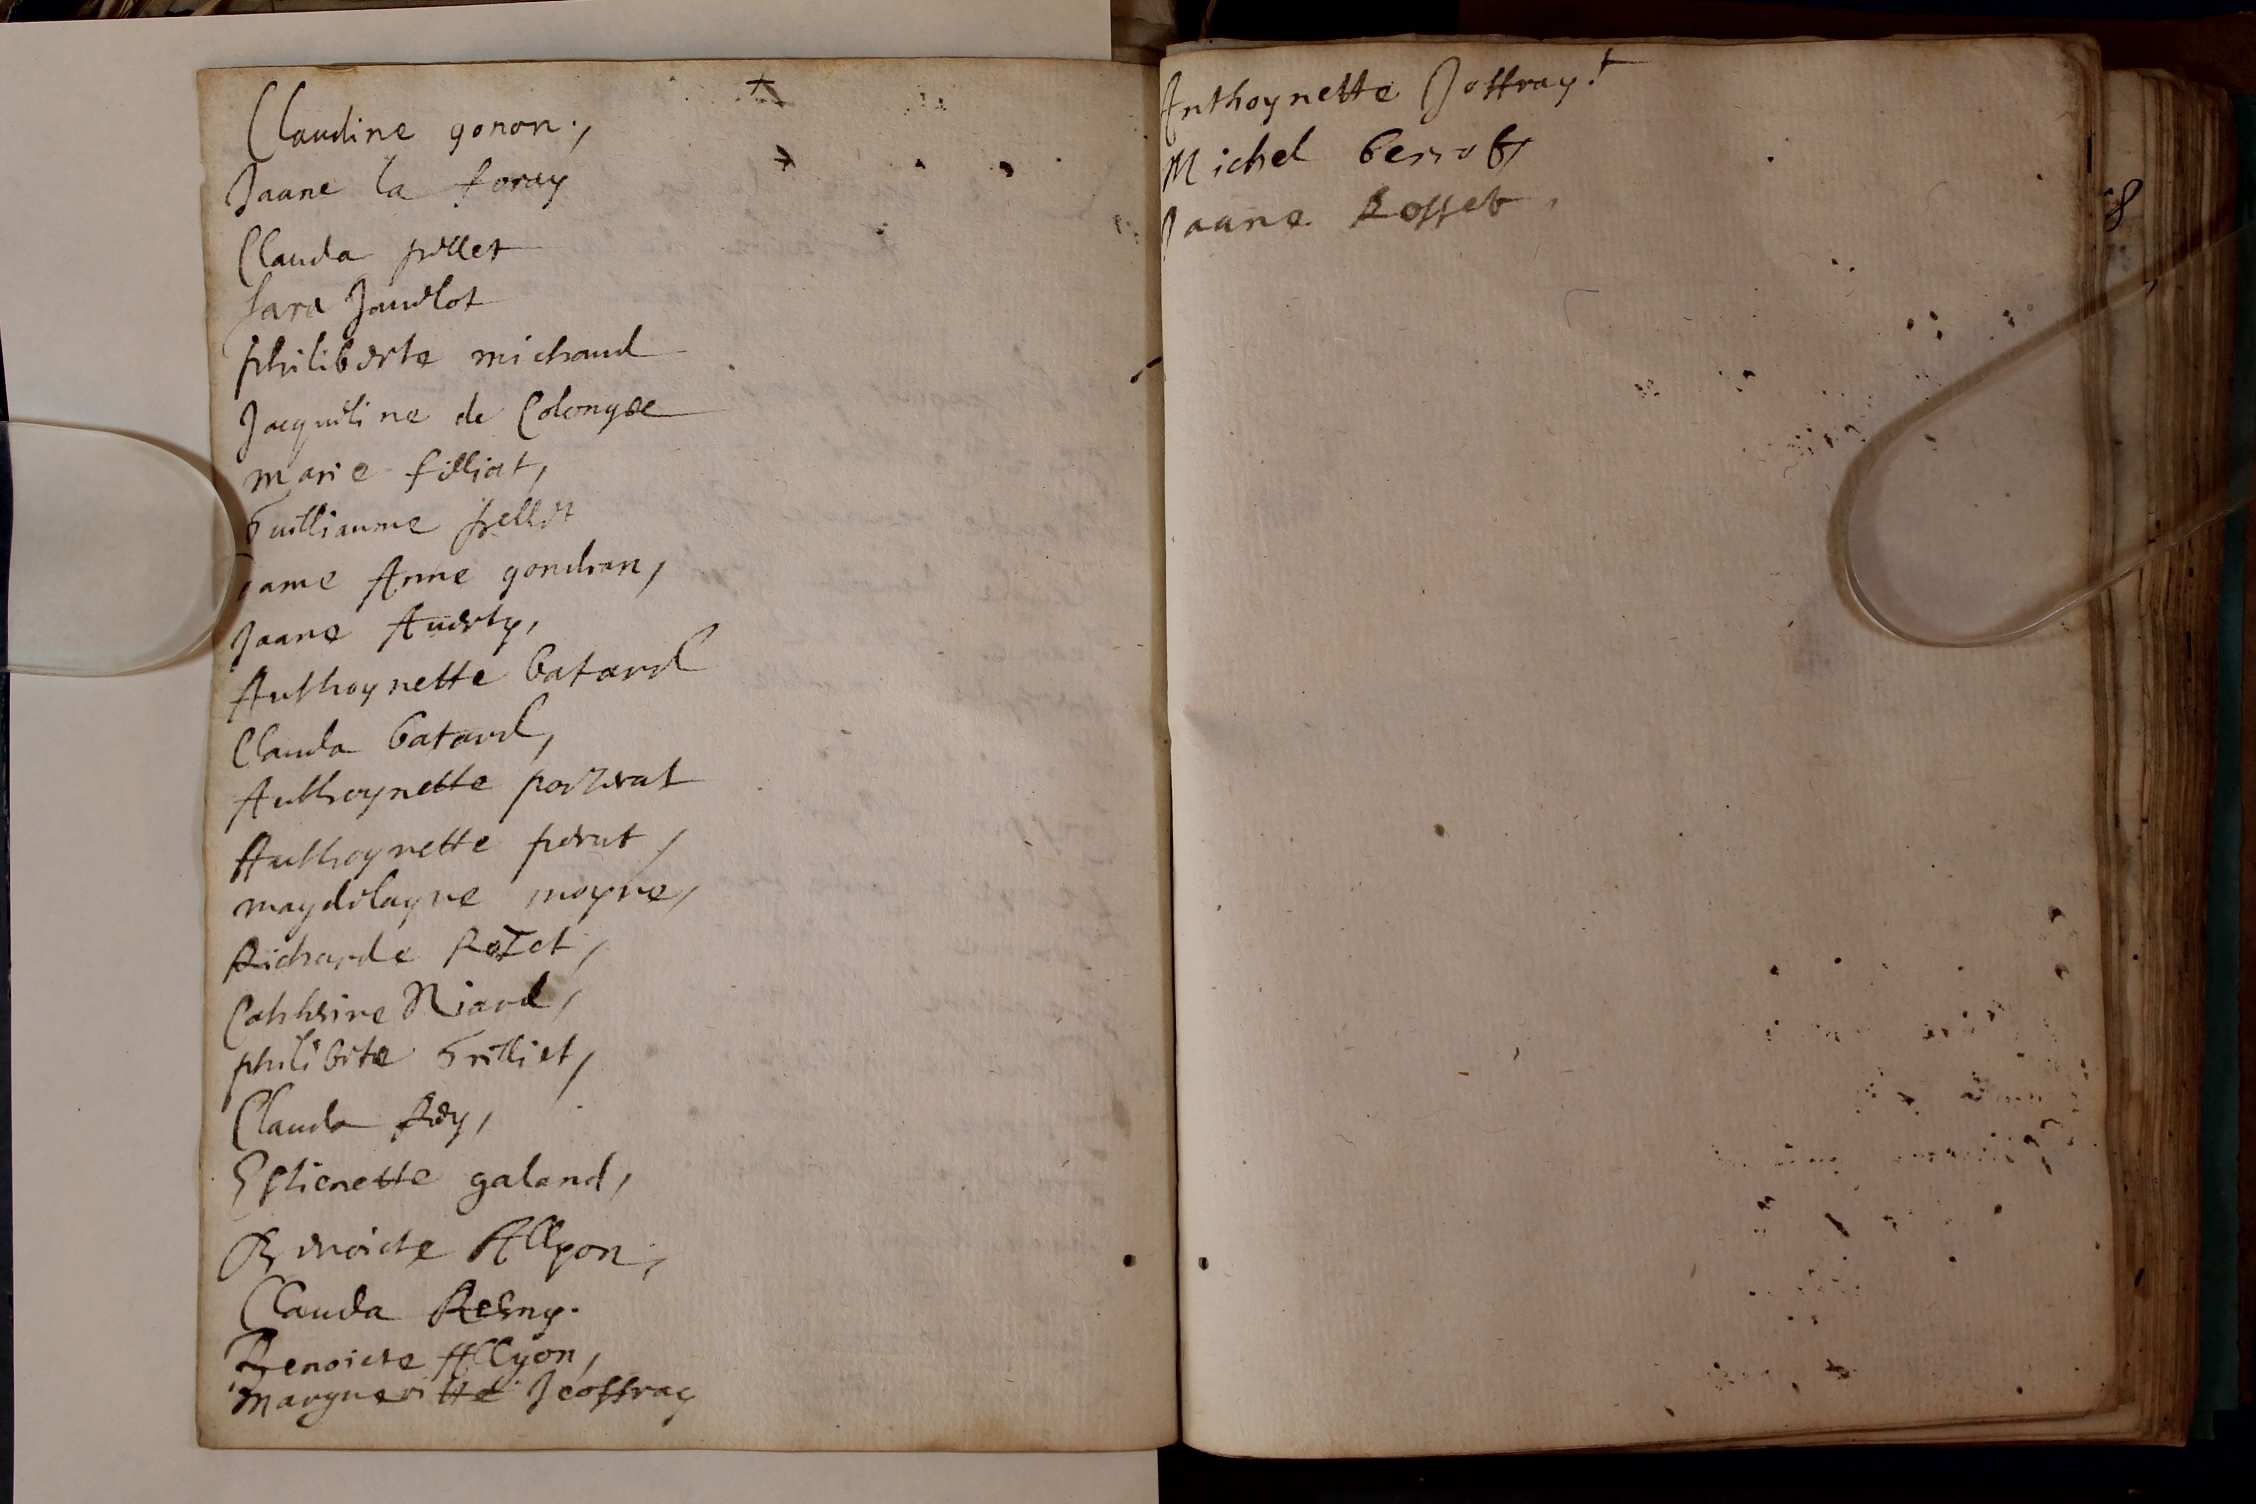 Claudine gonon.,
Jaane la foray
Clauda pillet
Sara Jandlot
philiberte michaud
Jacqueline de Colongee
marie filliat,
Guilliaume pellet
dame Anne gondran,
Jaane
Anthoynette batard
Clauda batard,
Anthoynette poizerat
Anthoynette perut,
magdelayne moyne,
Richarde Rozet,
Catherine Niard,
philiberte Grilliet,
Clauda Rey,
Estienette galand,
Benoicte Allyon,
Clauda Remy.
Benoicte Allyon,
Margueritte Jeoffray
Anthoynette Joffray.
Michel
Jaane Rosset,
8